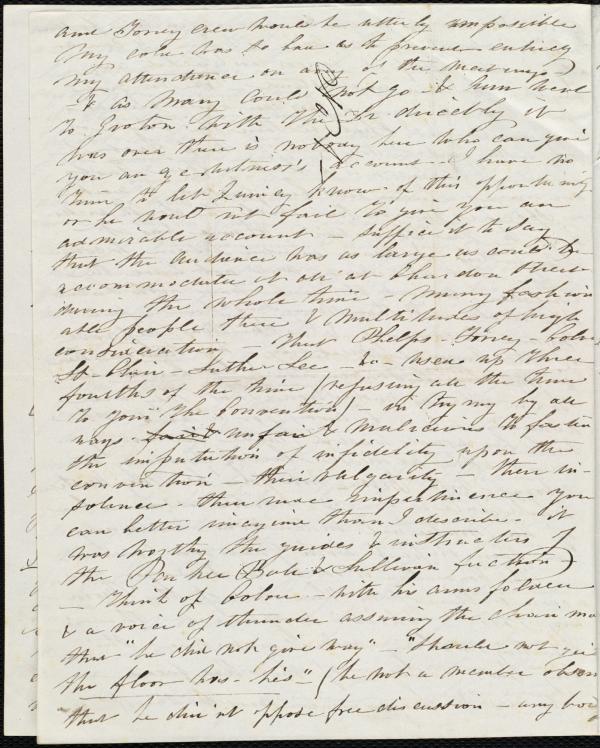 and Torrey crew would be utterly impossible
My cold was so bad as to prevent entirely
my attendance on any of the meetings
& as many could not go & hum
to Groton with the directly it
was over there is nobody here who can give
you an eye-witness's account. I have no
time to let Quincy know of this opportunity
or he would not fail to give you an
admirable account — suffice it to say
that the audience was as large as could be
accommodated at all at Chardon Street
during the whole time — many fashion
able people there & multitudes of high
consideration — that Phelps — Torrey — Colver
St Clair — Luther Lee — &c — used up three
fourths of the time (refusing all the time
to join "the Convention) — in trying by all
ways fair & unfair & malicious to fasten
the imputation of infidelity upon the
convention — their vulgarity — their in
solence — their rude impertinence you
can better imagine than I describe. it
was worthy the guides & instructors of
the Parker Sullivan faction)
— Think of Colver — with his arms folded
& a voice of thunder assuming the chair
that "he did not give way" — "should not
the floor was his" — (he not a member
that he did n't oppose free discussion — any body